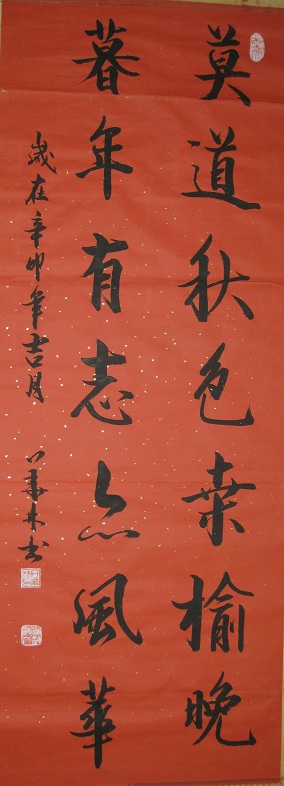 莫道秋色桑榆晚
暮年有志亦風華
歲在辛卯年吉月
華林书